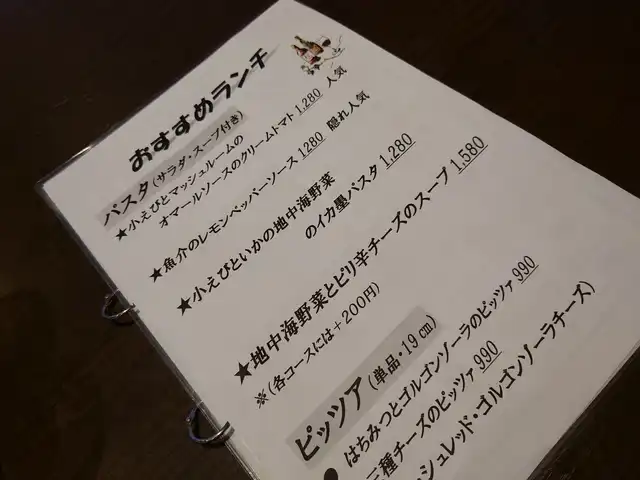 おすすめランチ
パスタ(サラダ・スープ付き)
★小えびとマッシュルームの
オマールソースのクリームトマト 1,280 人気
★魚介のレモンペッパーソース 1280 隠れ人気
★小えびといかの地中海野菜
のイカ墨パスタ 1,280
★地中海野菜とピリ辛チーズのスープ 1,580
※(各コースには+200円)
ピッツア(単品・19㎝)
● はちみつとゴルゴンゾーラのピッツァ 990
三種チーズのピッツァ 990
シュレッド・ゴルゴンゾーラチーズ)